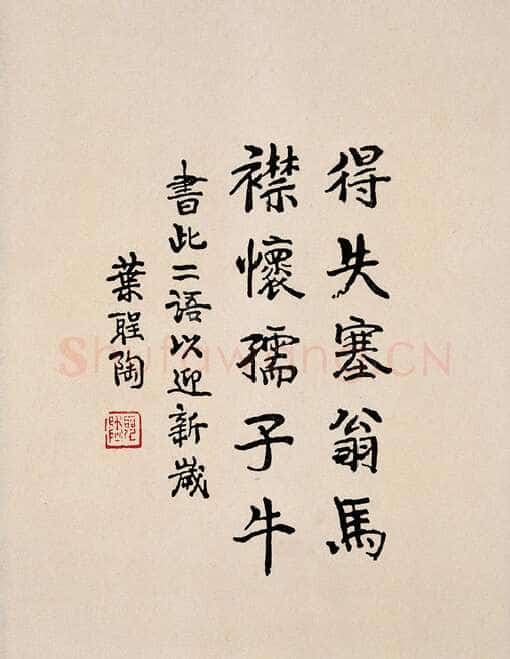 得失塞翁馬
襟懷孺子牛
書此二语以迎新歲
葉聖陶
Shufawang.CN